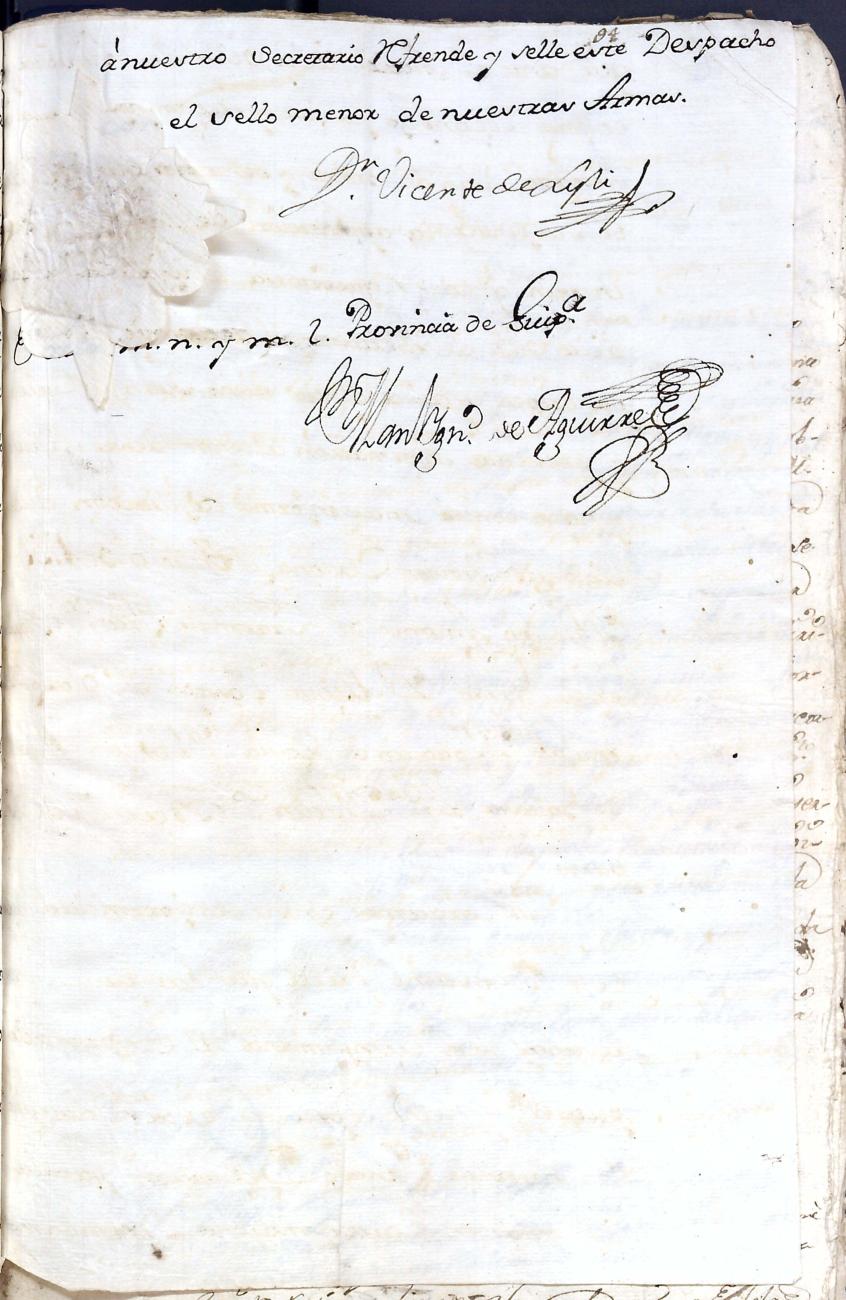 94
á nuestro Secretario Rfrende y selle este Despacho
el sello menor de nuestras Armas.
Dn. Vicente de Lili
m. n. y m. l. Provincia de Guipa.
Man Ygno. de Aguirre